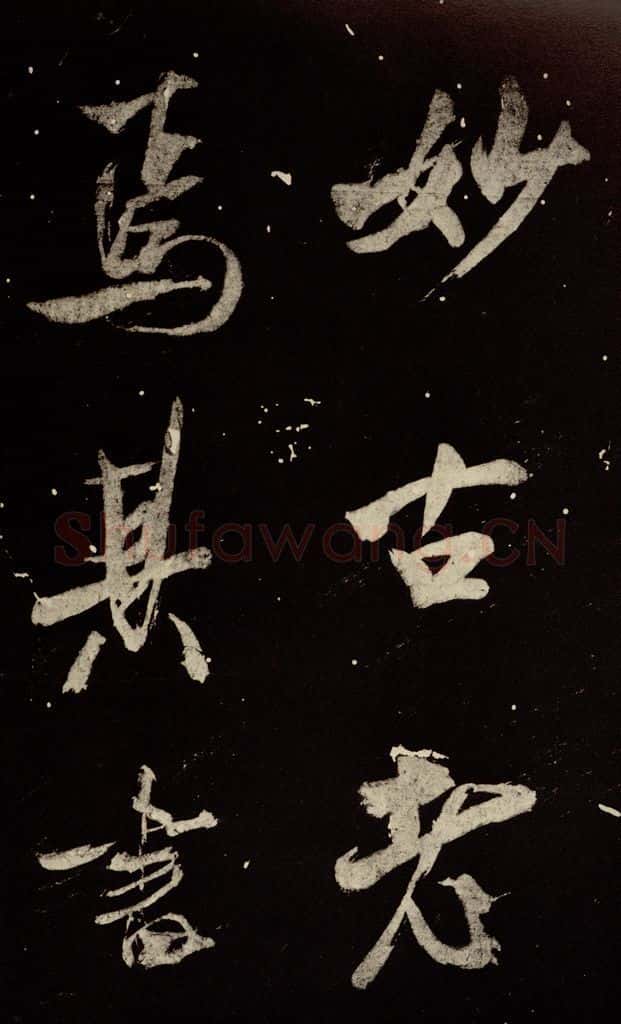 妙古老
焉其書
Shufawang.CN